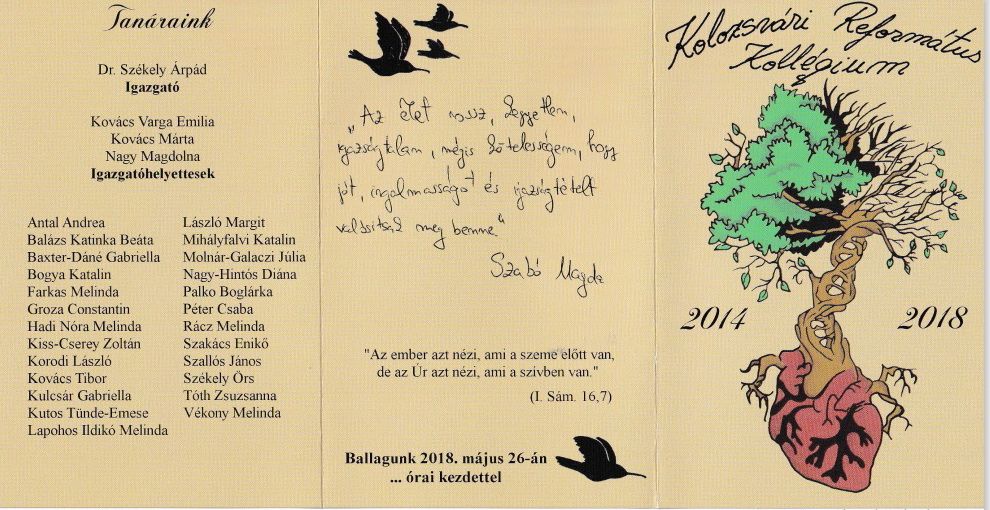 Tanáraink
Dr. Székely Árpád
Igazgató
Kovács Varga Emilia
Kovács Márta
Nagy Magdolna
Igazgatóhelyettesek
Antal Andrea
Balázs Katinka Beáta
Baxter-Dáné Gabriella
Bogya Katalin
Farkas Melinda
Groza Constantin
Hadi Nóra Melinda
Kiss-Cserey Zoltán
Korodi László
Kovács Tibor
Kulcsár Gabriella
Kutos Tünde-Emese
Lapohos Ildikó Melinda
László Margit
Mihályfalvi Katalin
Molnár-Galaczi Júlia
Nagy-Hintós Diána
Palko Boglárka
Péter Csaba
Rácz Melinda
Szakács Enikő
Szallós János
Székely Örs
Tóth Zsuzsanna
Vékony Melinda
„Az élet rossz, kegyetlen,
igazságtalan, mégis kötelességem, hogy
jót, irgalmasságot és igazságtételt
valósítsak meg benne"
Szabó Magda
"Az ember azt nézi, ami a szeme előtt van,
de az Úr azt nézi, ami a szívben van."
(I. Sám. 16,7)
Ballagunk 2018. május 26-án
... órai kezdettel
Kolozsvári Református
Kollégium
2014 2018